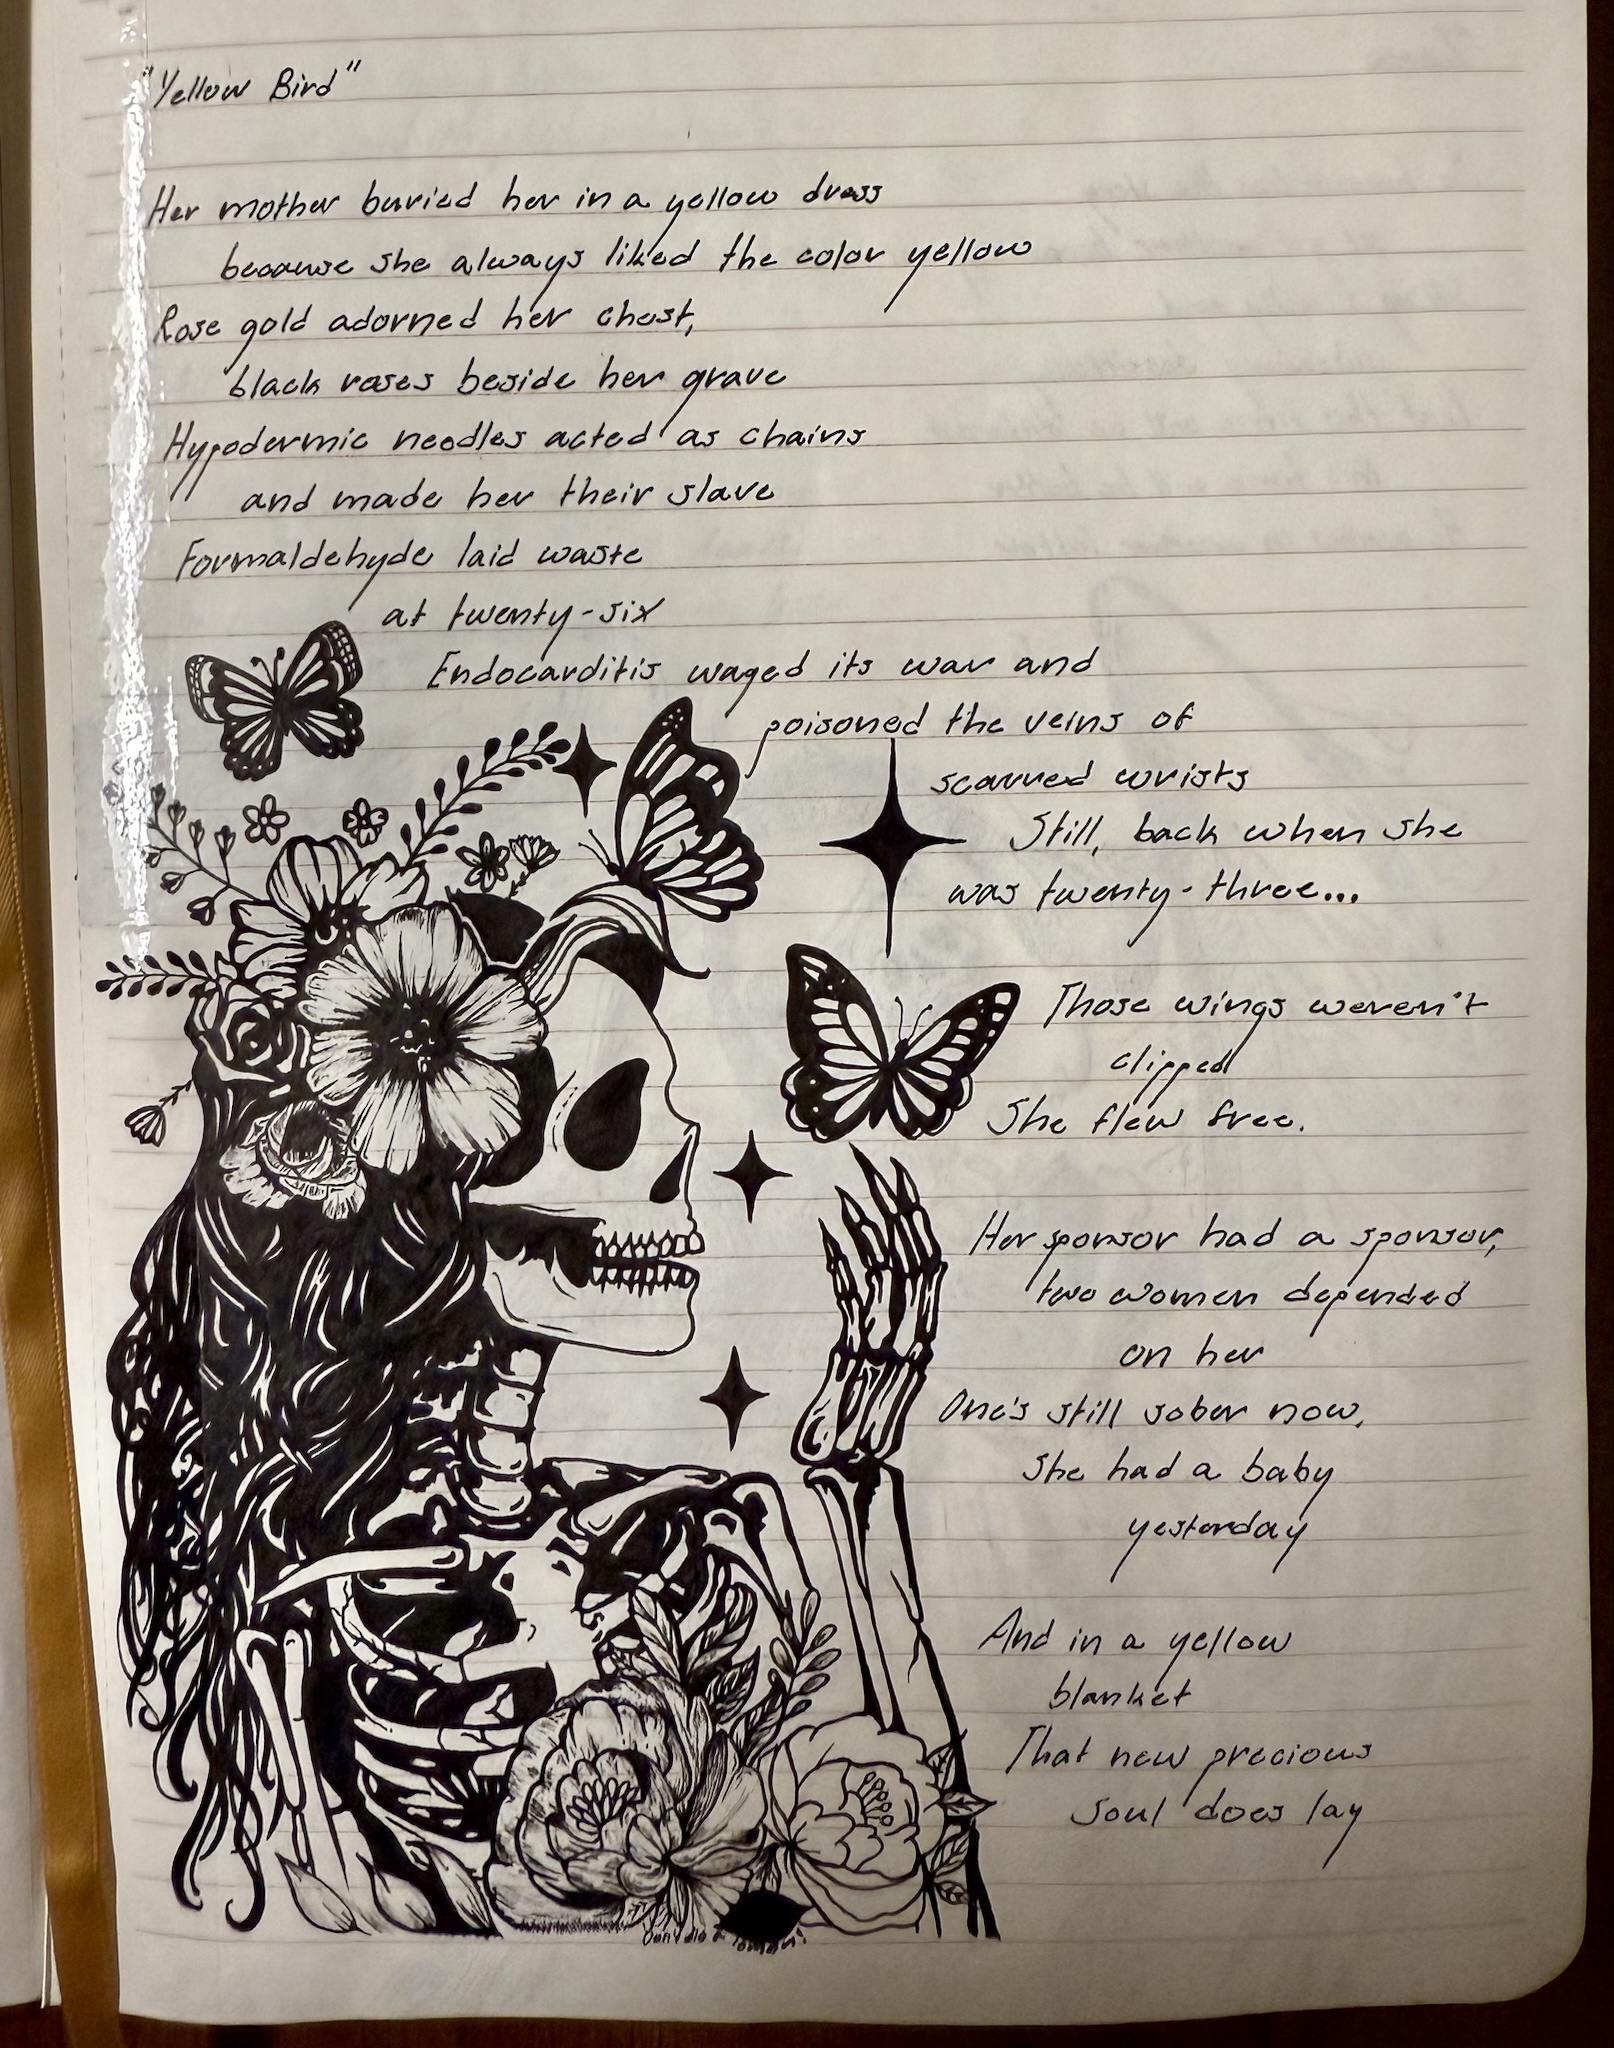 "Yellow Bird"
Her mother buried her in a yellow dress
because she always liked the color yellow
Rose gold adorned her chest,
black roses beside her grave
Hypodermic needles acted as chains
and made her their slave
Formaldehyde laid waste
at twenty-six
Endocarditis waged its war and
poisoned the veins of
scarred wrists
Still, back when she
was twenty-three...
Those wings weren't
clipped
She flew free.
Her sponsor had a sponsor,
two women depended
on her
One's still sober now,
she had a baby
yesterday
And in a yellow
blanket
That new precious
soul does lay